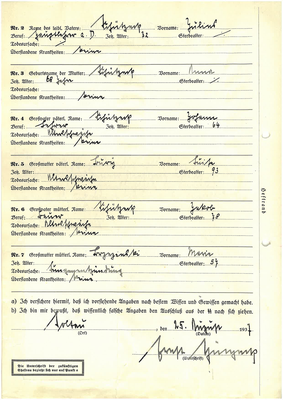 Nr. 2 Name des leibl. Vaters: Schützeck Vorname: Julius
Beruf: Hauptlehrer a. D. Jetz. Alter: 72 Sterbealter:
Todesursache:
Überstandene Krankheiten: keine
Nr. 3 Geburtsname der Mutter: Vorname: Anna
Jetz. Alter: 68 Jahre Sterbealter:
Todesursache:
Überstandene Krankheiten: keine
Nr. 4 Großvater väterl. Name: Schützeck Vorname: Johann
Beruf: Jetz. Alter: Sterbealter: 64
Todesursache: Altersschwäche
Überstandene Krankheiten: keine
Nr. 5 Großmutter väterl. Name: Vorname: Luise
Jetz. Alter: Sterbealter: 93
Todesursache: Altersschwäche
Überstandene Krankheiten: keine
Nr. 6 Großvater mütterl. Name: Schützeck Vorname: Jakob
Beruf: Bauer Jetz. Alter: Sterbealter: 78
Todesursache: Altersschwäche
Überstandene Krankheiten: keine
Nr. 7 Großmutter mütterl. Name: Vorname: Marie
Jetz. Alter: Sterbealter: 57
Todesursache: Lungenentzündung
Überstandene Krankheiten: keine.
a) Ich versichere hiermit, daß ich vorstehende Angaben nach bestem Wissen und Gewissen gemacht habe.
b) Ich bin mir bewußt, daß wissentlich falsche Angaben den Ausschluß aus der SS nach sich ziehen.
, den 25. August 1937
(Ort) (Datum)
Ernst
(Unterschrift)
Die Unterschrift der zukünftigen
Ehefrau bezieht sich nur auf Punkt a
Heftrand